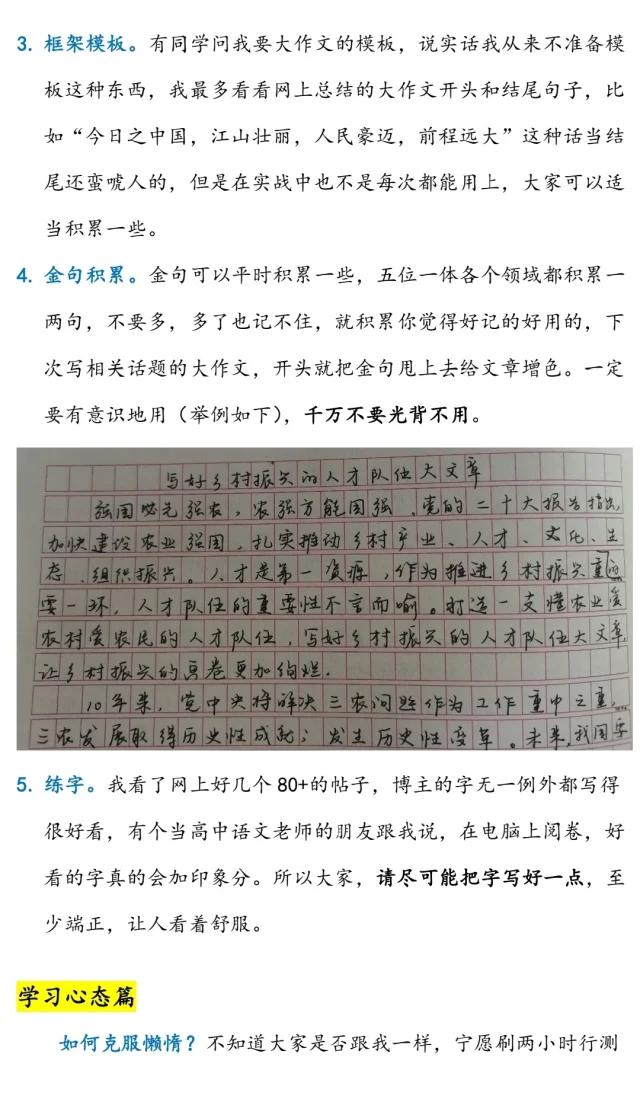 3. 框架模板。有同学问我要大作文的模板，说实话我从来不准备模
板这种东西，我最多看看网上总结的大作文开头和结尾句子，比
如“今日之中国，江山壮丽，人民豪迈，前程远大”这种话当结
尾还蛮唬人的，但是在实战中也不是每次都能用上，大家可以适
当积累一些。
4. 金句积累。金句可以平时积累一些，五位一体各个领域都积累一
两句，不要多，多了也记不住，就积累你觉得好记的好用的，下
次写相关话题的大作文，开头就把金句甩上去给文章增色。一定
要有意识地用（举例如下），千万不要光背不用。
写好乡村振兴的人才队伍大文章
强国必先强农，农强方能国强。党的二十大报告指出，
加快建设农业强国，扎实推动乡村产业、人才、文化、生
态、组织振兴。人才是第一资源，作为推进乡村振兴重
要一环，人才队伍的重要性不言而喻。打造一支懂农业爱
农村爱农民的人才队伍，写好乡村振兴的人才队伍大文章，
让乡村振兴的画卷更加绚烂。
10年来，党中央将解决三农问题作为工作重中之重，
三农发展取得历史性成就；发生历史性变革。未来，我国要
5. 练字。我看了网上好几个 80+的帖子，博主的字无一例外都写得
很好看，有个当高中语文老师的朋友跟我说，在电脑上阅卷，好
看的字真的会加印象分。所以大家，请尽可能把字写好一点，至
少端正，让人看着舒服。
学习心态篇
如何克服懒惰？不知道大家是否跟我一样，宁愿刷两小时行测